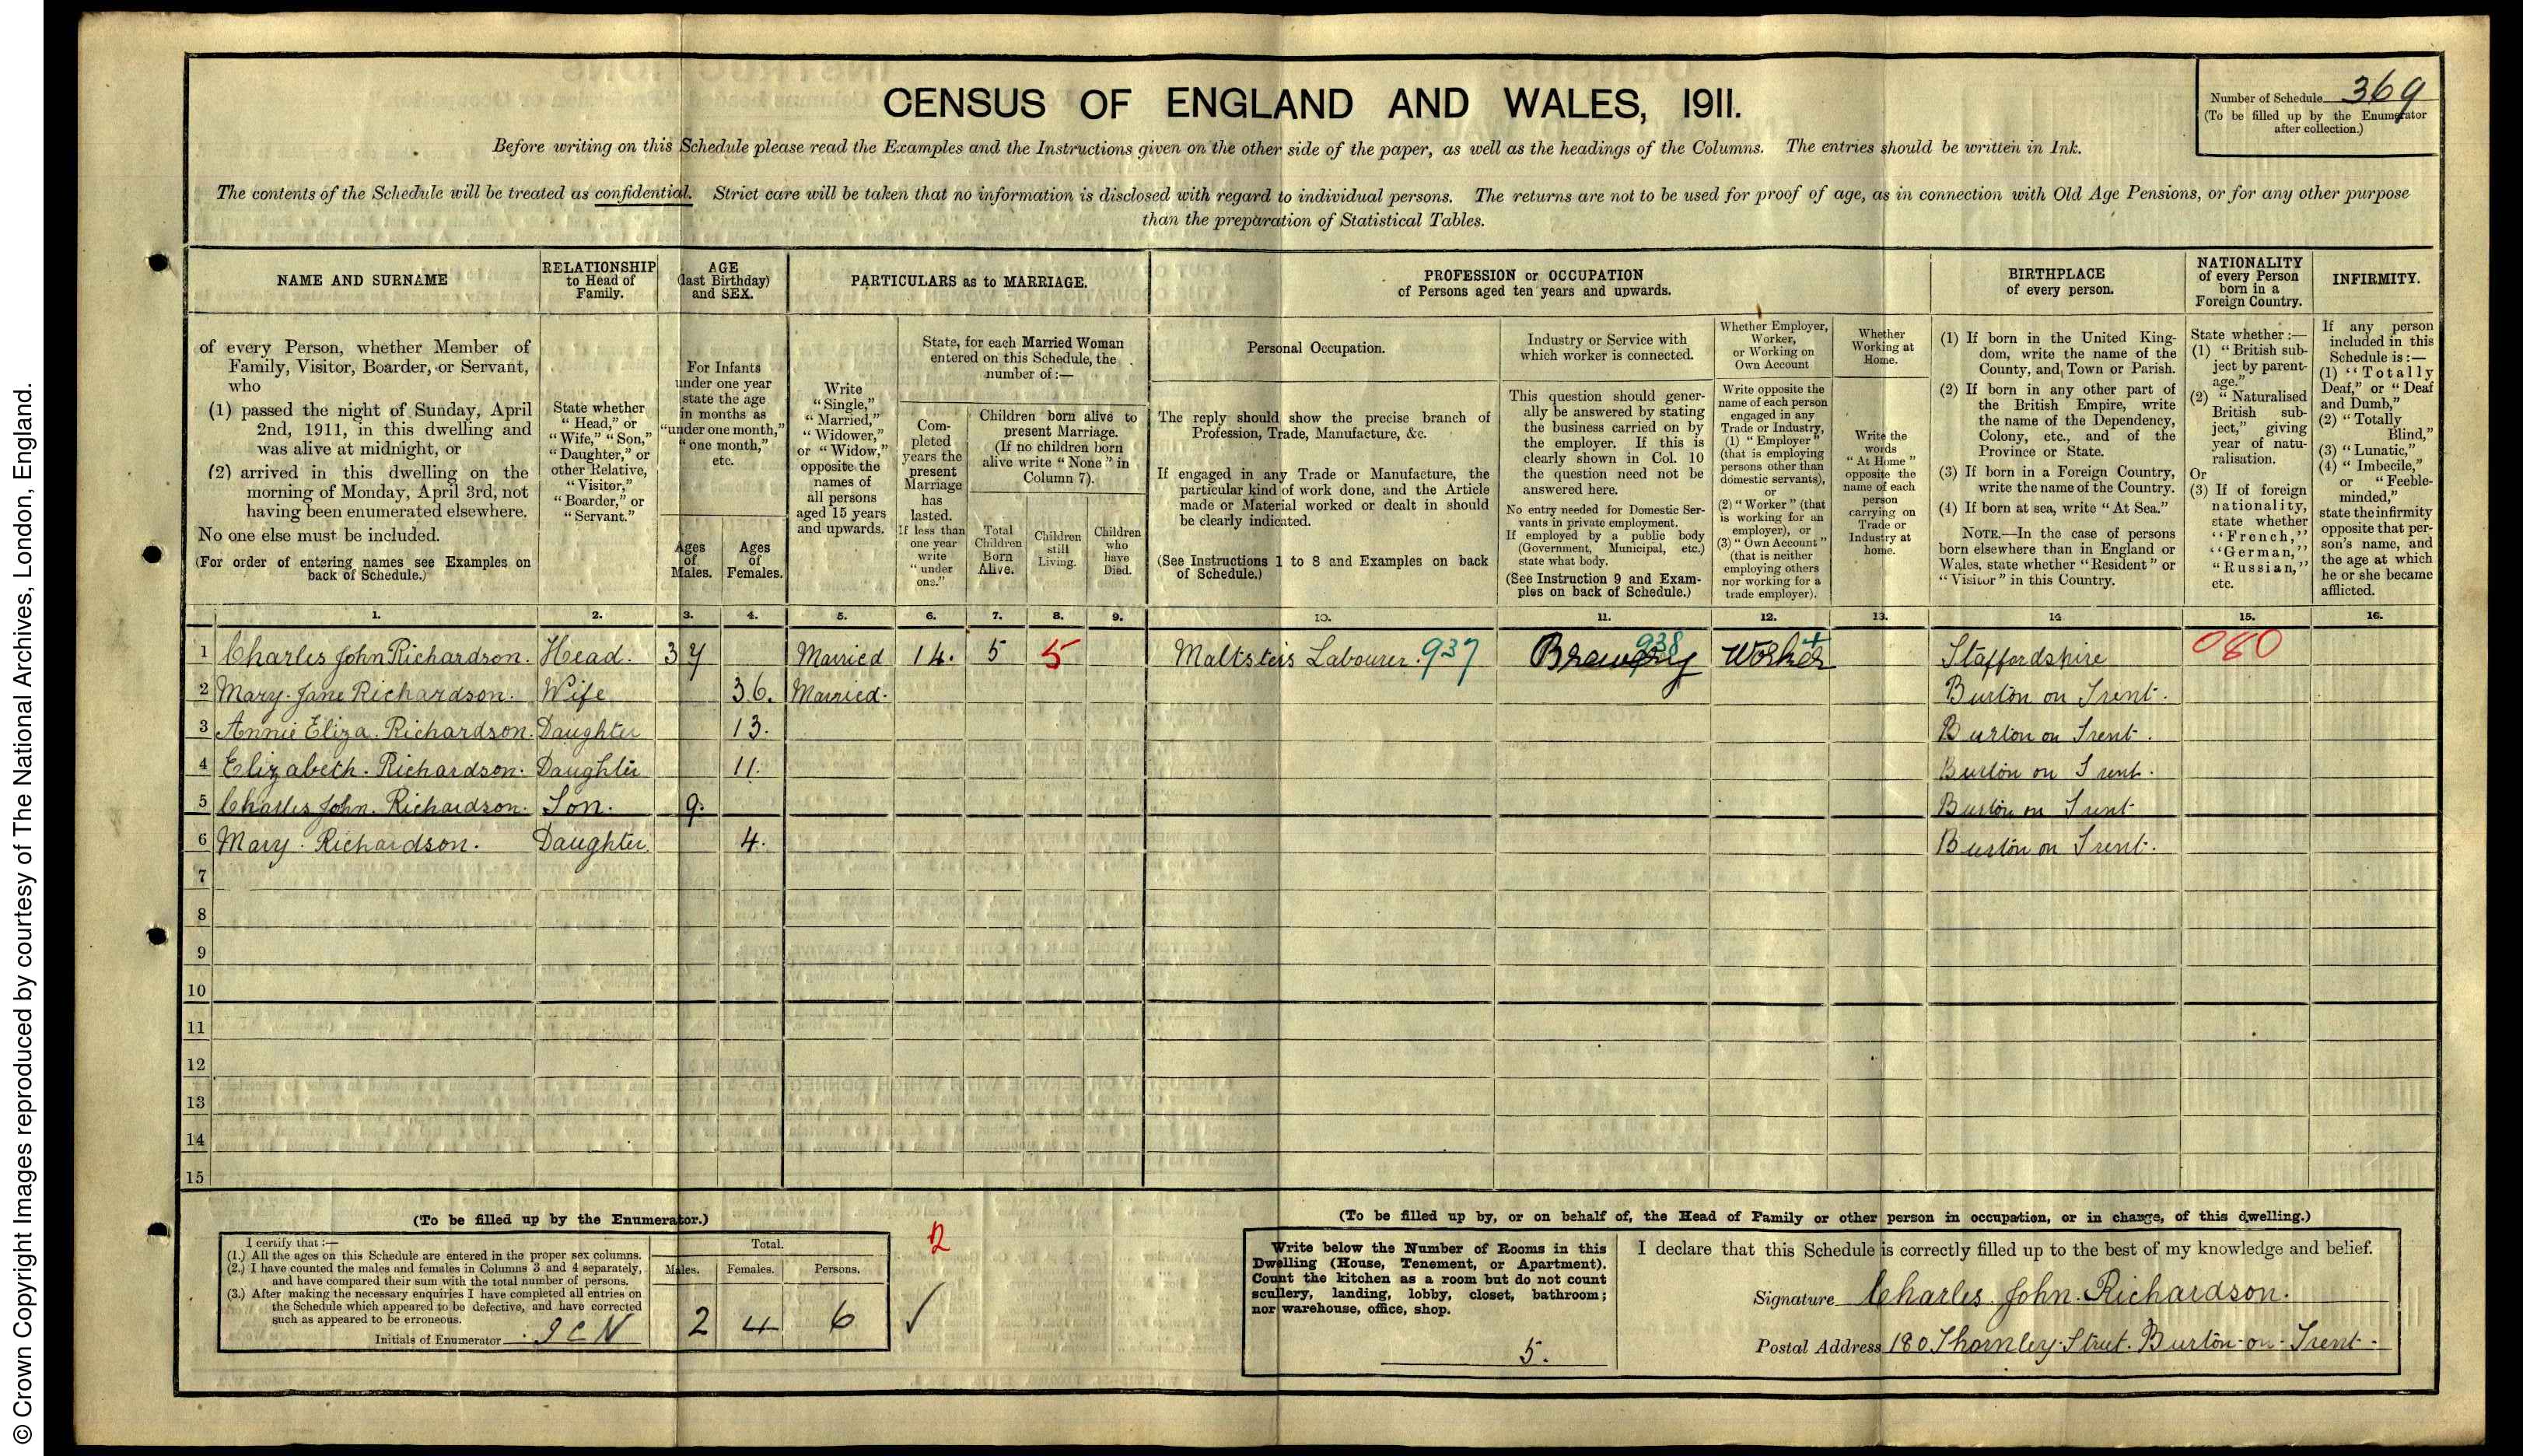 CENSUS OF ENGLAND AND WALES, 1911.
Number of Schedule 369
(To be filled up by the Enumerator
after collection.)
Before writing on this Schedule please read the Examples and the Instructions given on the other side of the paper, as well as the headings of the Columns. The entries should be written in Ink.
The contents of the Schedule will be treated as confidential. Strict care will be taken that no information is disclosed with regard to individual persons. The returns are not to be used for proof of age, as in connection with Old Age Pensions, or for any other purpose
than the preparation of Statistical Tables.
NAME AND SURNAME
of every Person, whether Member of
Family, Visitor, Boarder, or Servant,
who
(1) passed the night of Sunday, April
2nd, 1911, in this dwelling and
was alive at midnight, or
(2) arrived in this dwelling on the
morning of Monday, April 3rd, not
having been enumerated elsewhere.
No one else must be included.
(For order of entering names see Examples on
back of Schedule.)
RELATIONSHIP
to Head of
Family.
State whether
"Head," or
"Wife," "Son,"
"Daughter," or
other Relative,
"Visitor,"
"Boarder," or
"Servant."
AGE
(last Birthday)
and SEX.
For Infants
under one year
state the age
in months as
"under one month,"
"one month,"
etc.
Ages
of
Males.
Ages
of
Females.
PARTICULARS as to MARRIAGE.
Write
"Single,"
"Married,"
"Widower,"
or "Widow,"
opposite the
names of
all persons
aged 15 years
and upwards.
State, for each Married Woman
entered on this Schedule, the
number of :—
Com-
pleted
years the
present
Marriage
has
lasted.
If less than
one year
write
"under
one."
Children born alive to
present Marriage.
(If no children born
alive write "None" in
Column 7).
Total
Children
Born
Alive.
Children
still
Living.
Children
who
have
Died.
PROFESSION or OCCUPATION
of Persons aged ten years and upwards.
Personal Occupation.
The reply should show the precise branch of
Profession, Trade, Manufacture, &c.
If engaged in any Trade or Manufacture, the
particular kind of work done, and the Article
made or Material worked or dealt in should
be clearly indicated.
(See Instructions 1 to 8 and Examples on back
of Schedule.)
Industry or Service with
which worker is connected.
This question should gener-
ally be answered by stating
the business carried on by
the employer. If this is
clearly shown in Col. 10
the question need not be
answered here.
No entry needed for Domestic Ser-
vants in private employment.
If employed by a public body
(Government, Municipal, etc.)
state what body.
(See Instruction 9 and Exam-
ples on back of Schedule.)
Whether Employer,
Worker,
or Working on
Own Account
Write opposite the
name of each person
engaged in any
Trade or Industry,
(1) "Employer"
(that is employing
persons other than
domestic servants),
or
(2) "Worker" (that
is working for an
employer), or
(3) "Own Account"
(that is neither
employing others
nor working for a
trade employer).
Whether
Working at
Home.
Write the
words
"At Home"
opposite the
name of each
person
carrying on
Trade or
Industry at
home.
BIRTHPLACE
of every person.
(1) If born in the United King-
dom, write the name of the
County, and Town or Parish.
(2) If born in any other part of
the British Empire, write
the name of the Dependency,
Colony, etc., and of the
Province or State.
(3) If born in a Foreign Country,
write the name of the Country.
(4) If born at sea, write "At Sea."
NOTE.—In the case of persons
born elsewhere than in England or
Wales, state whether "Resident" or
"Visitor" in this Country.
NATIONALITY
of every Person
born in a
Foreign Country.
State whether :—
(1) "British sub-
ject by parent-
age."
(2) "Naturalised
British sub-
ject," giving
year of natu-
ralisation.
Or
(3) If of foreign
nationality,
state whether
"French,"
"German,"
"Russian,"
etc.
INFIRMITY.
If any person
included in this
Schedule is :—
(1) "Totally
Deaf," or "Deaf
and Dumb,"
(2) "Totally
Blind,"
(3) "Lunatic,"
(4) "Imbecile,"
or "Feeble-
minded,"
state the infirmity
opposite that per-
son's name, and
the age at which
he or she became
afflicted.
1. 2. 3. 4. 5. 6. 7. 8. 9. 10. 11. 12. 13. 14 15. 16.
1 Charles John Richardson. Head. 37 Married 14. 5 5 Maltsters Labourer. 937 Brewery 938 Worker 4 Staffordshire 080
2 Mary Jane Richardson. Wife 36. Married. Burton on Trent.
3 Annie Eliza. Richardson. Daughter 13. Burton on Trent.
4 Elizabeth. Richardson. Daughter 11. Burton on Trent.
5 Charles John. Richardson. Son. 9. Burton on Trent
6 Mary. Richardson. Daughter. 4. Burton on Trent.
7
8
9
10
11
12
13
14
15
(To be filled up by the Enumerator.)
I certify that :—
(1.) All the ages on this Schedule are entered in the proper sex columns.
(2.) I have counted the males and females in Columns 3 and 4 separately,
and have compared their sum with the total number of persons.
(3.) After making the necessary enquiries I have completed all entries on
the Schedule which appeared to be defective, and have corrected
such as appeared to be erroneous.
Initials of Enumerator
Total.
Males. Females. Persons.
2 4 6
(To be filled up by, or on behalf of, the Head of Family or other person in occupation, or in charge, of this dwelling.)
Write below the Number of Rooms in this
Dwelling (House, Tenement, or Apartment).
Count the kitchen as a room but do not count
scullery, landing, lobby, closet, bathroom;
nor warehouse, office, shop.
5.
I declare that this Schedule is correctly filled up to the best of my knowledge and belief.
Signature Charles John. Richardson.
Postal Address 180 Thornley Street. Burton-on-Trent.
© Crown Copyright Images reproduced by courtesy of The National Archives, London, England.